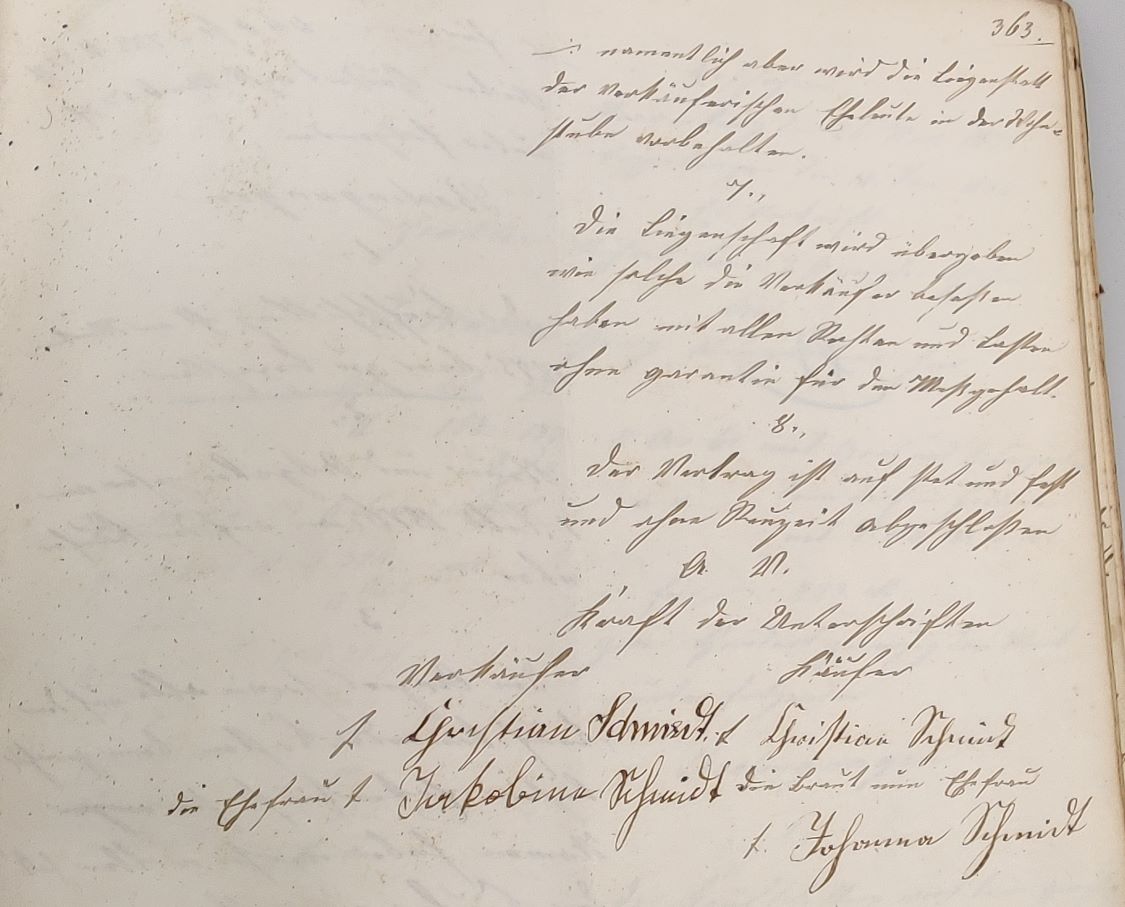 363.
namentlich aber wird die Liegerstatt
der verkäuferischen Eheleute in der Wohn=
stube vorbehalten.
7.,
Die Liegenschaft wird übergeben
wie solche die Verkäufer besessen
haben mit allen Rechten und Lasten
ohne garantie für den Meßgehalt.
8.,
Der Vertrag ist auf stet und fest
und ohne Reuzeit abgeschlossen
V.
Kraft der Unterschriften
Verkäufer Käufer
t Christian Schmidt. t Christian Schmidt
die Ehefrau t Jakobina Schmidt die Braut nun Ehefrau
t. Johanna Schmidt